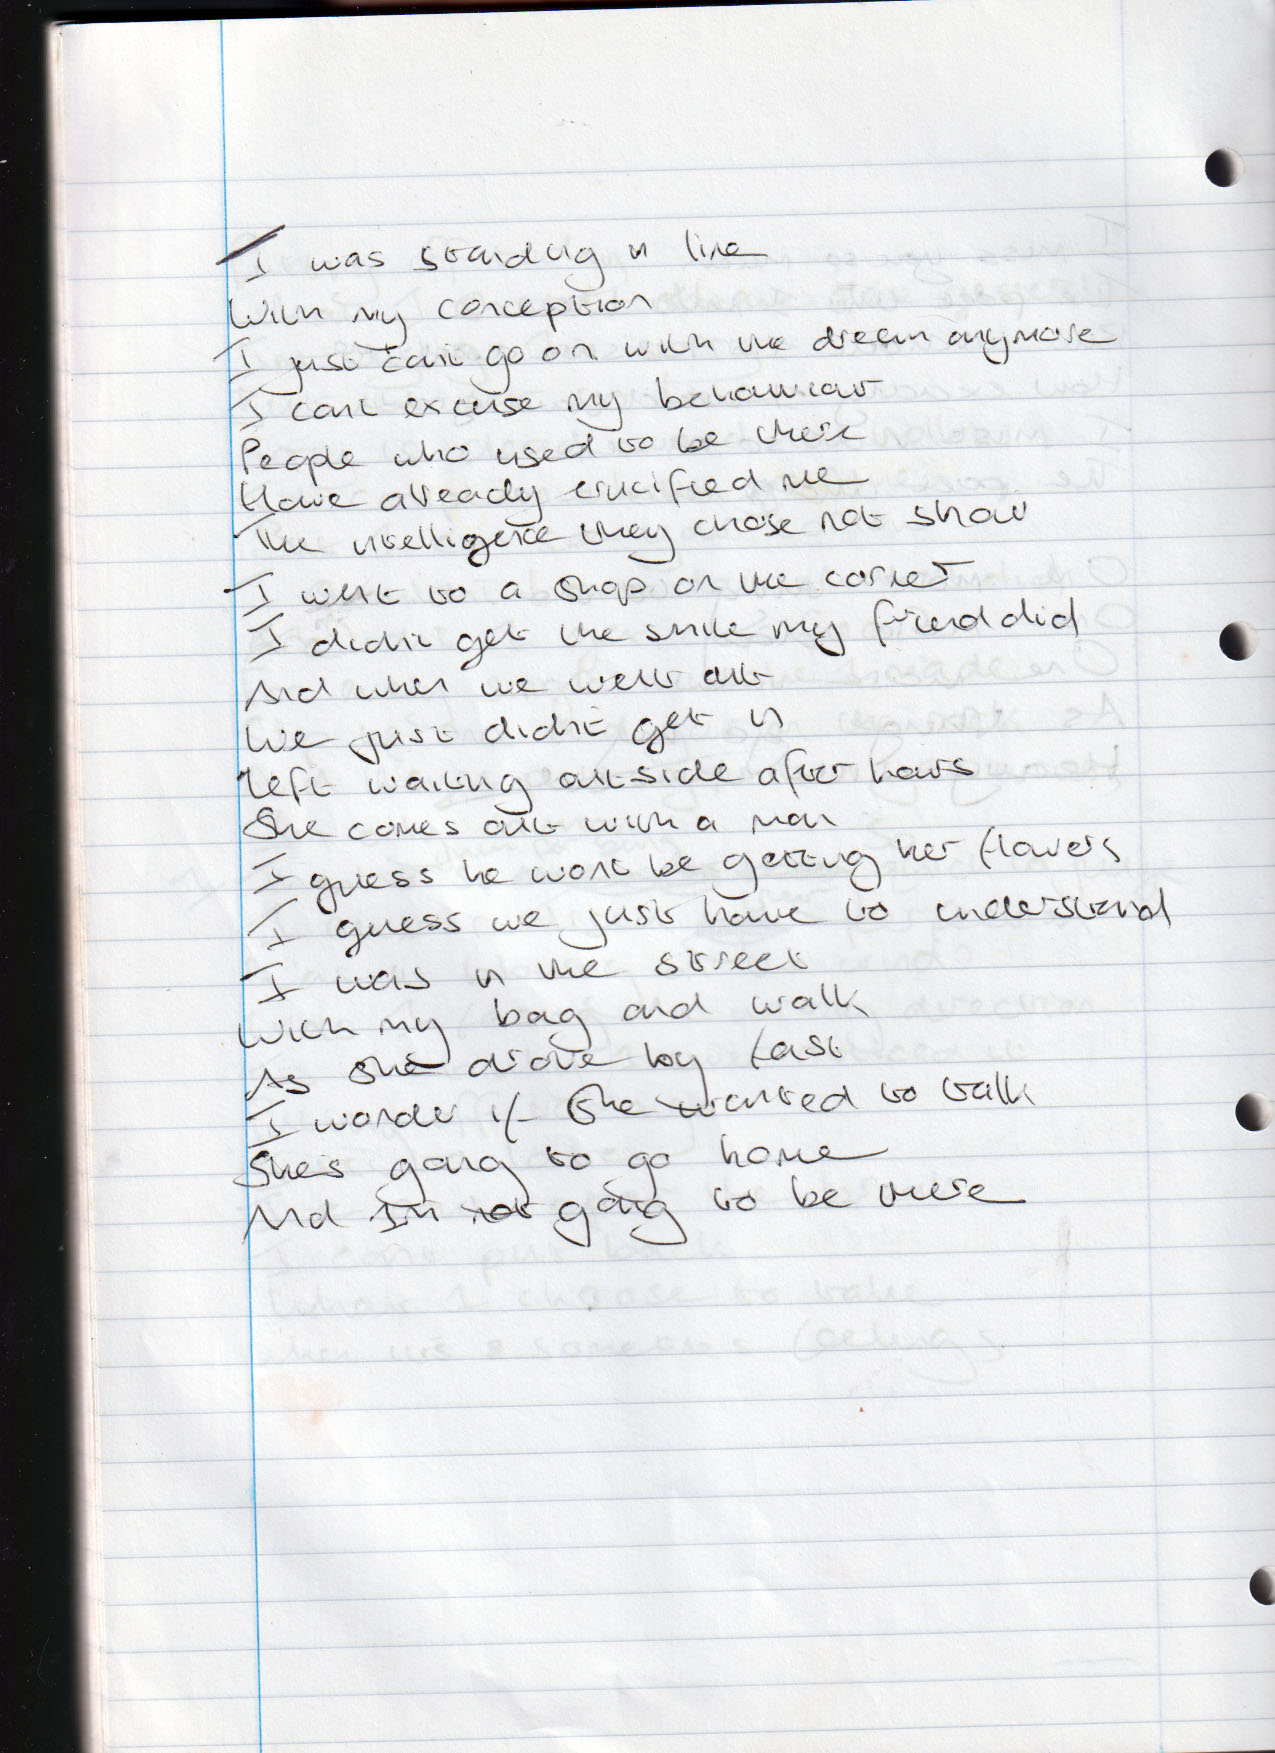 I was standing in line
With my conception
I just can't go on with the dream anymore
I can't excuse my behaviour
People who used to be there
Have already crucified me
The intelligence they chose not show
I went to a shop on the corner
I didn't get the smile my friend did
And when we went out
We just didn't get in
Left waiting outside after hours
She comes out with a man
I guess he wont be getting her flowers
I guess we just have to understand
I was in the street
With my bag and walk
As she drove by fast
I wonder if she wanted to talk
She's going to go home
And I'm not going to be there
I can't pull back
What I choose to take